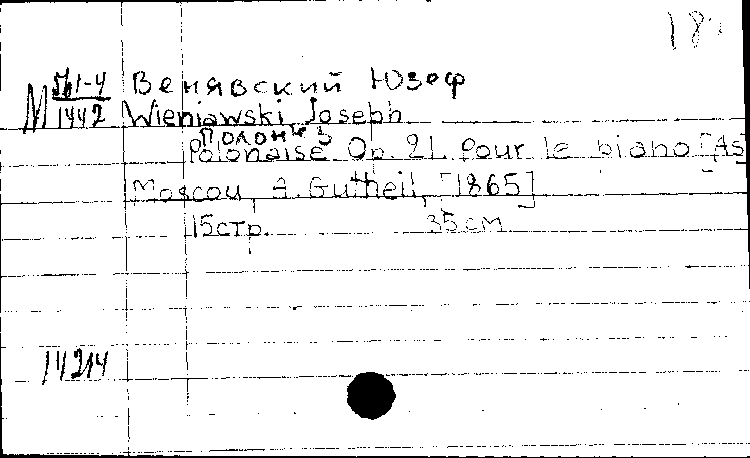 18
М 561-4 Венявский Юзеф
1442 Wieniawski Joseph.
Полонез
Polonaise Op. 21. pour le piano [As
Moscou, A. Gutheil, [1865]
15стр. 35см
14214